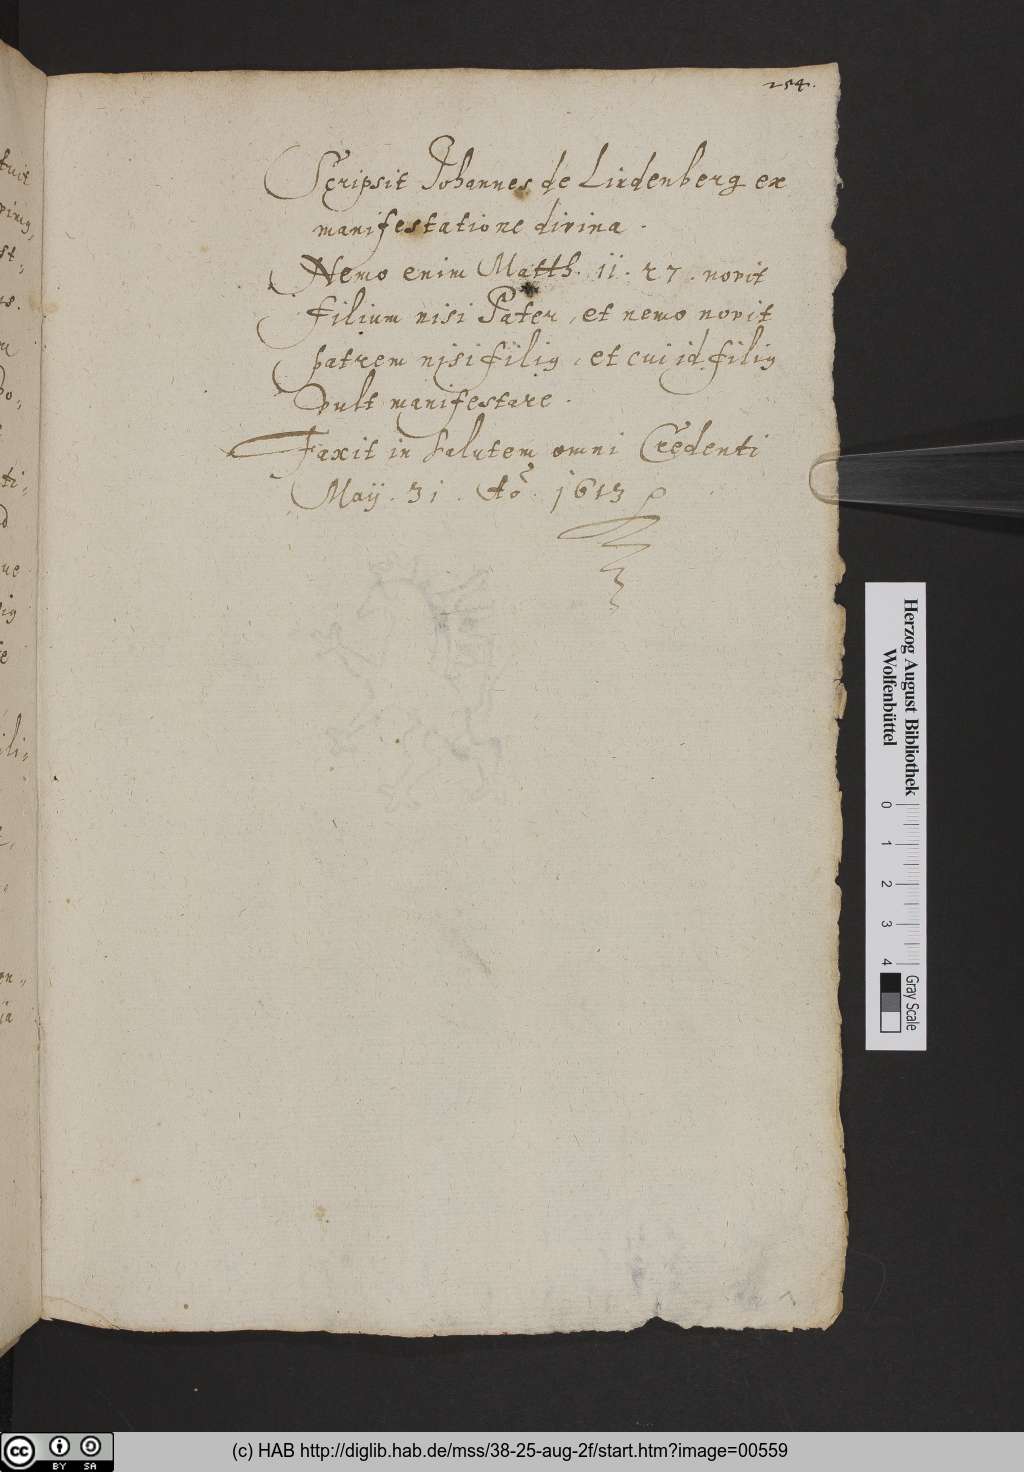 254.
Scripsit Johannes de Lindenberg ex
manifestatione divina.
Nemo enim Matth. ii. 27. novit
filium nisi Pater, et nemo novit
patrem nisi filiꝰ, et cui id filiꝰ
vult manifestare.
Faxit in salutem omni Credenti
Maÿ. 31. Aō. 1613
Herzog August Bibliothek
Wolfenbüttel
0 1 2 3 4
Gray Scale
cc BY SA
(c) HAB http://diglib.hab.de/mss/38-25-aug-2f/start.htm?image=00559